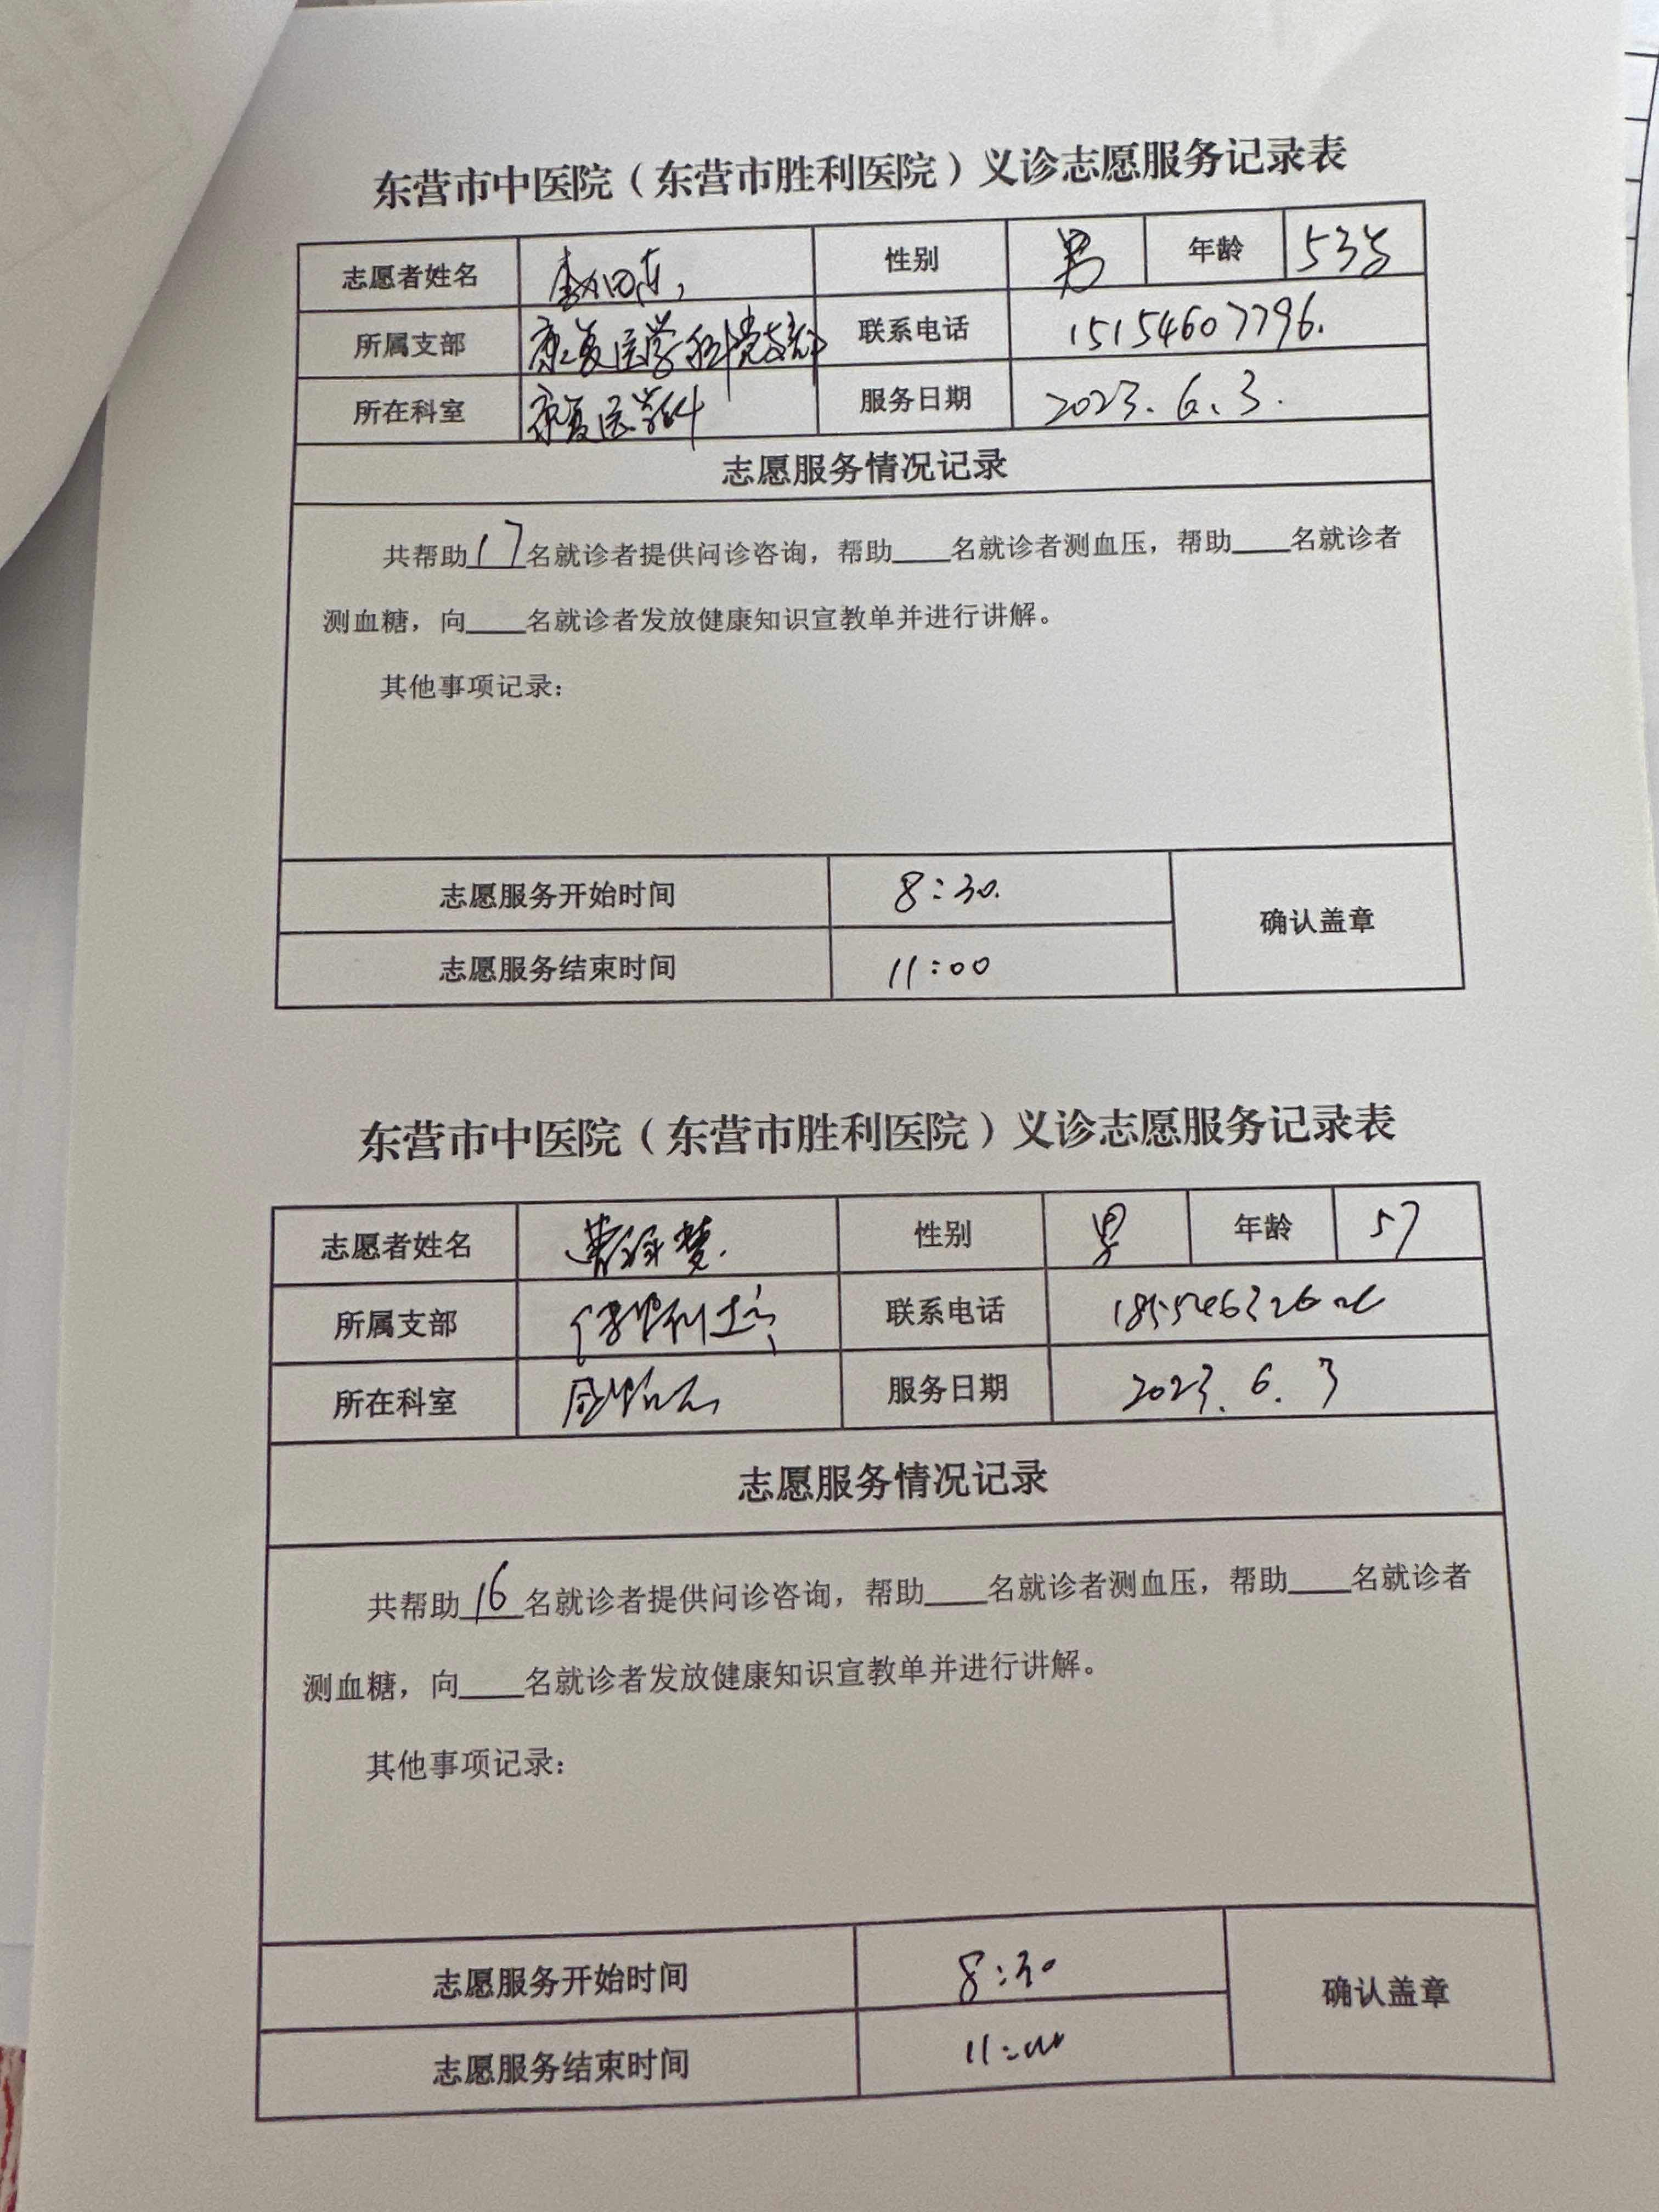 东营市中医院（东营市胜利医院）义诊志愿服务记录表
志愿者姓名 性别 男 年龄 53岁
所属支部 康复医学科党支部 联系电话 15154607796.
所在科室 康复医学科 服务日期 2023.6.3.
志愿服务情况记录
共帮助17名就诊者提供问诊咨询，帮助____名就诊者测血压，帮助____名就诊者
测血糖，向____名就诊者发放健康知识宣教单并进行讲解。
其他事项记录：
志愿服务开始时间 8:30.
确认盖章
志愿服务结束时间 11:00
东营市中医院（东营市胜利医院）义诊志愿服务记录表
志愿者姓名 性别 男 年龄 57
所属支部 联系电话
所在科室 服务日期 2023.6.3
志愿服务情况记录
共帮助16名就诊者提供问诊咨询，帮助____名就诊者测血压，帮助____名就诊者
测血糖，向____名就诊者发放健康知识宣教单并进行讲解。
其他事项记录：
志愿服务开始时间 8:30
确认盖章
志愿服务结束时间 11:00